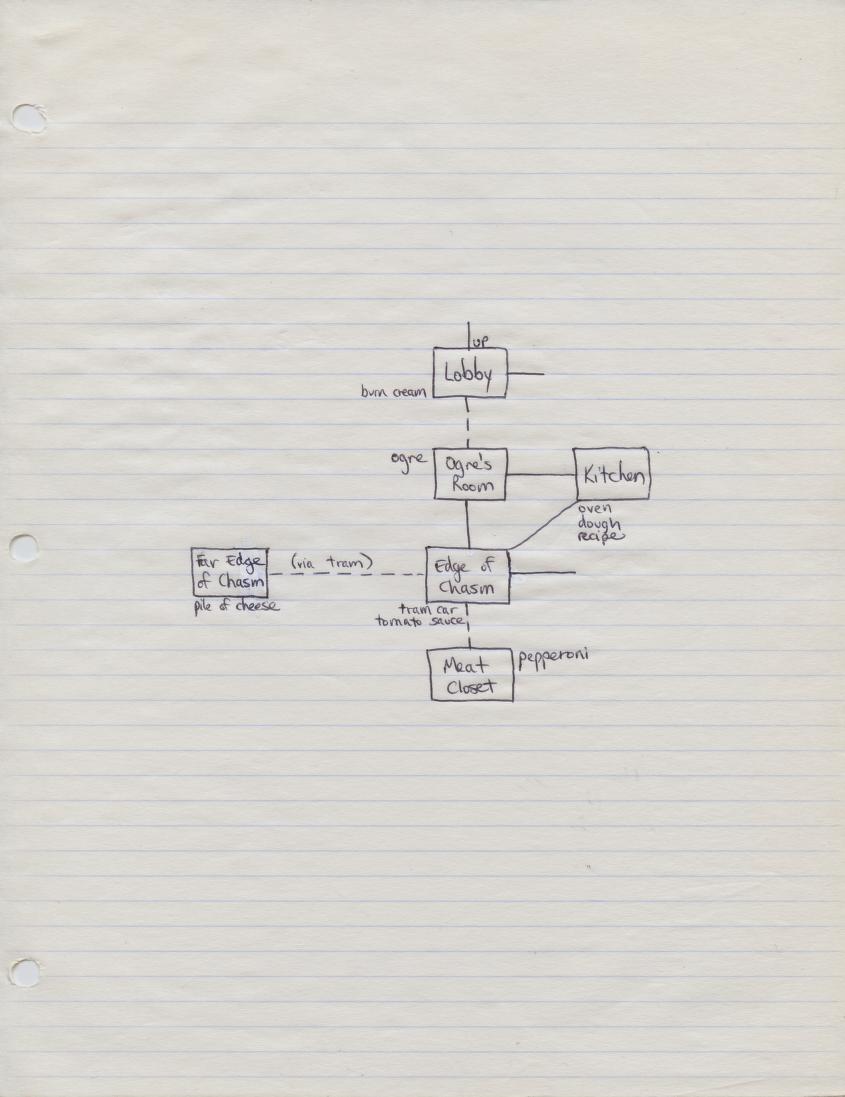 up
Lobby
burn cream
ogre
Ogre's
Room
Kitchen
oven
dough
recipe
Far Edge
of Chasm
(via tram)
Edge of
Chasm
pile of cheese
tram car
tomato sauce
Meat
Closet
pepperoni